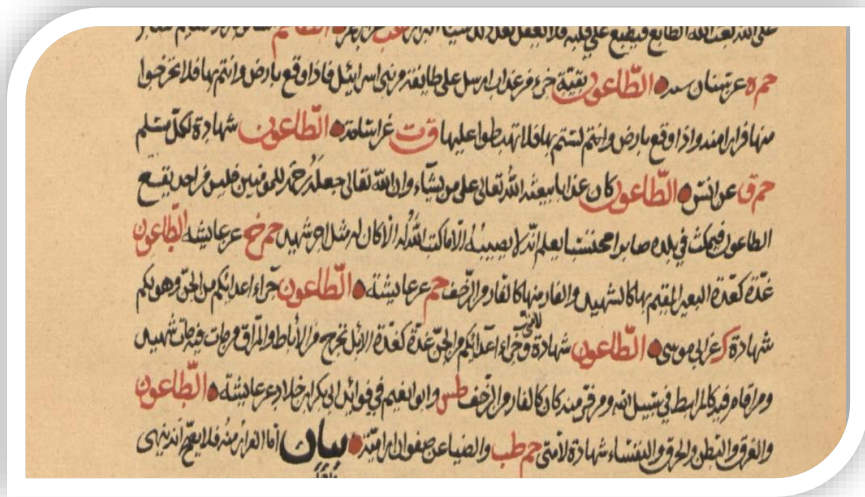 على الله بعث الله الطابع فيطبع على قلبه فلا يعقل بعد ذلك شيئا
حم ٥ عن سعد ● الطاعون بقية رجز وعذاب ارسل على طائفة من بنى اسرائيل فاذا وقع بارض وانتم بها فلا تخرجوا
منها فرارا منه واذا وقع بارض ولستم بها فلا تهبطوا عليها ق ت عن اسامة ● الطاعون شهادة لكل مسلم
حم ق عن انس ● الطاعون كان عذابا يبعثه الله تعالى على من يشاء وان الله تعالى جعله رحمة للمؤمنين فليس من احد يقع
الطاعون فيمكث فى بلده صابرا محتسبا يعلم انه لا يصيبه الا ما كتب الله له الا كان له مثل اجر شهيد حم خ عن عايشة ● الطاعون
غدة كغدة البعير المقيم بها كالشهيد والفار منها كالفار من الزحف حم عن عايشة ● الطاعون وخز اعدائكم من الجن وهو لكم
شهادة ك عن ابى موسى ● الطاعون شهادة لامتى ووخز اعدائكم من الجن غدة كغدة الابل تخرج من الاباط والمراق من مات فيه مات شهيد
ومن اقام فيه كالمرابط فى سبيل الله ومن فر منه كان كالفار من الزحف طس وابو نعيم فى فوائد ابى بكر بن خلاد عن عايشة ● الطاعون
والغرق والبطن والحرق والنفساء شهادة لامتى حم طب والضيا عن صفوان بن امية ● بيان اما الفرار منه فلا يصح انه ينهى